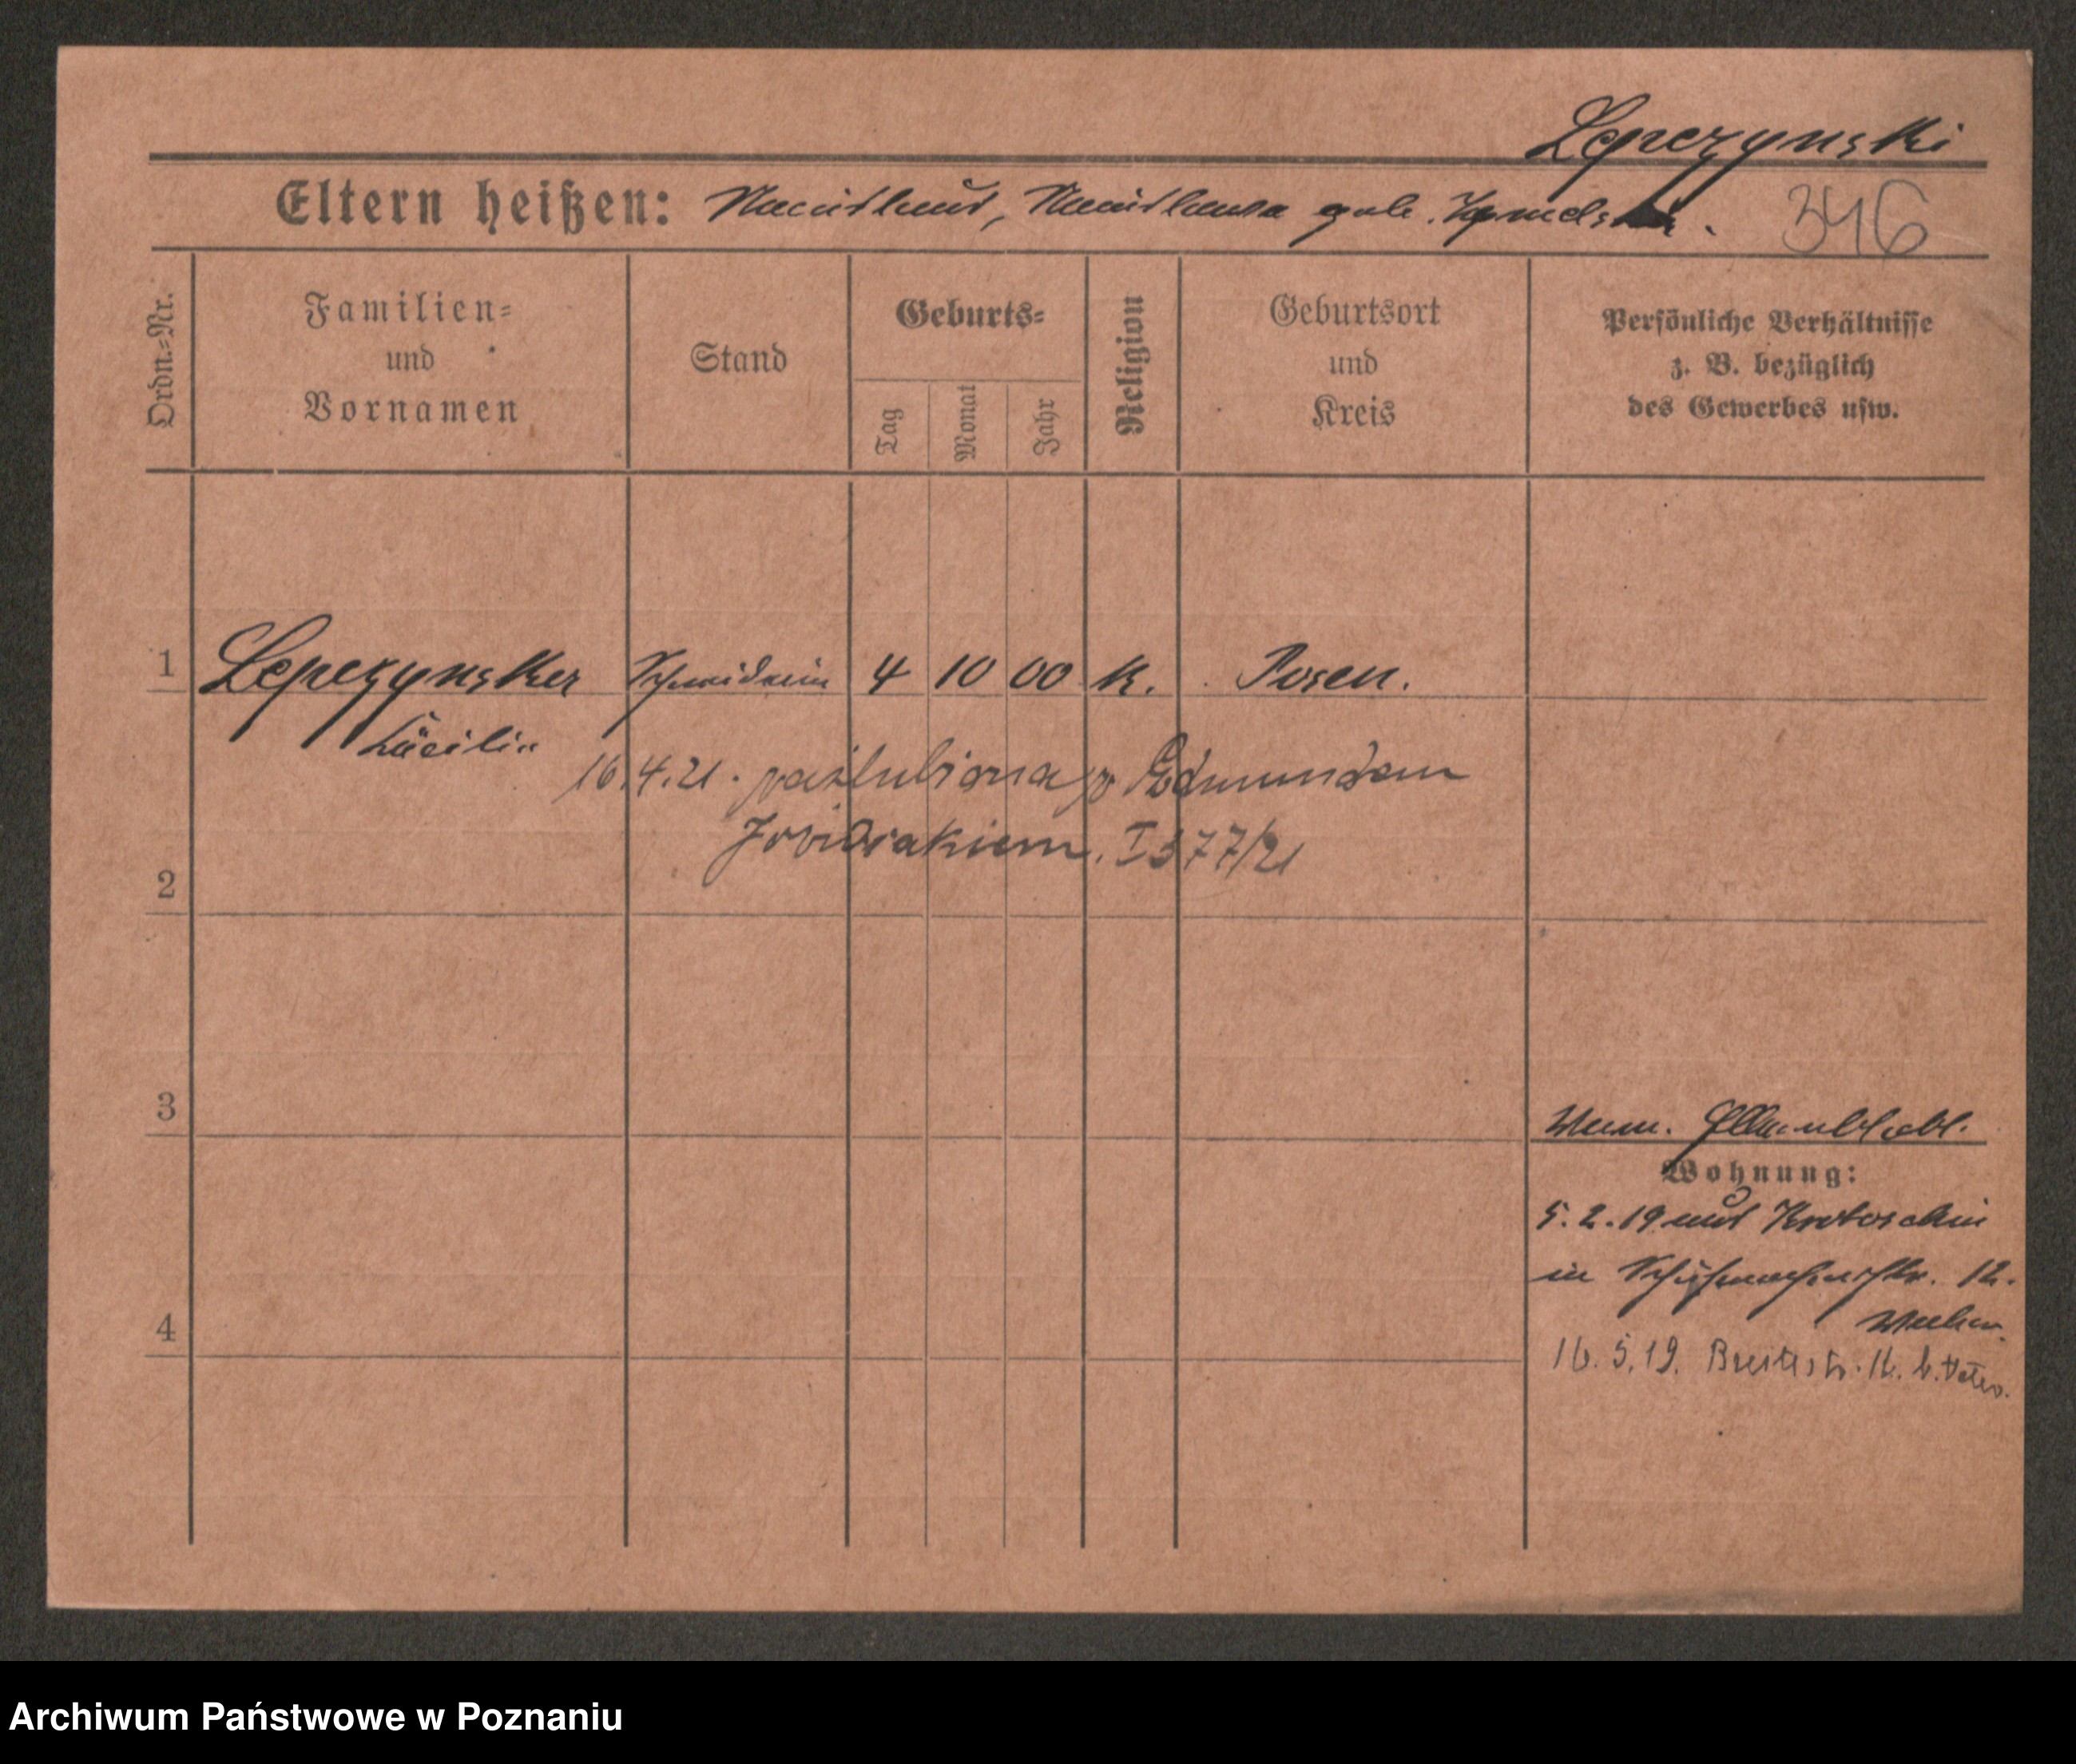 Lepczynski
Eltern heißen: geb.
346
Ordn.-Nr.
Familien-
und
Vornamen
Stand
Geburts-
Tag
Monat
Jahr
Religion
Geburtsort
und
Kreis
Persönliche Verhältnisse
z. B. bezüglich
des Gewerbes usw.
1 Lepczynsker Schneiderin 4 10 00 K. Posen.
Lücilia
16.4.21. zaślubiona z Edmundem
I 377/21
2
3
Wohnung:
5.2.19 aus Krotoschin
in Schuhmacherstr. 12.
4
16.5.19. Breitestr. 16. b. Vater.
Archiwum Państwowe w Poznaniu